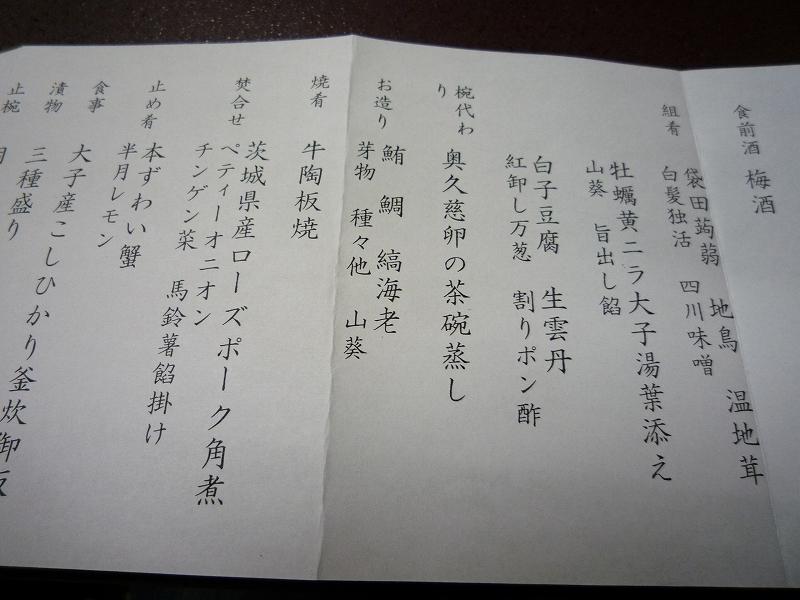 食前酒 梅酒
組肴 袋田蒟蒻 地鳥 温地茸
白髪独活 四川味噌
牡蠣黄ニラ大子湯葉添え
山葵 旨出し餡
白子豆腐 生雲丹
紅卸し万葱 割りポン酢
椀代わり 奥久慈卵の茶碗蒸し
お造り 鮪 鯛 縞海老
芽物 種々他 山葵
焼肴 牛陶板焼
焚合せ 茨城県産ローズポーク角煮
ペティーオニオン
チンゲン菜 馬鈴薯餡掛け
止め肴 本ずわい蟹
半月レモン
食事 大子産こしひかり釜炊御飯
漬物 三種盛り
止椀